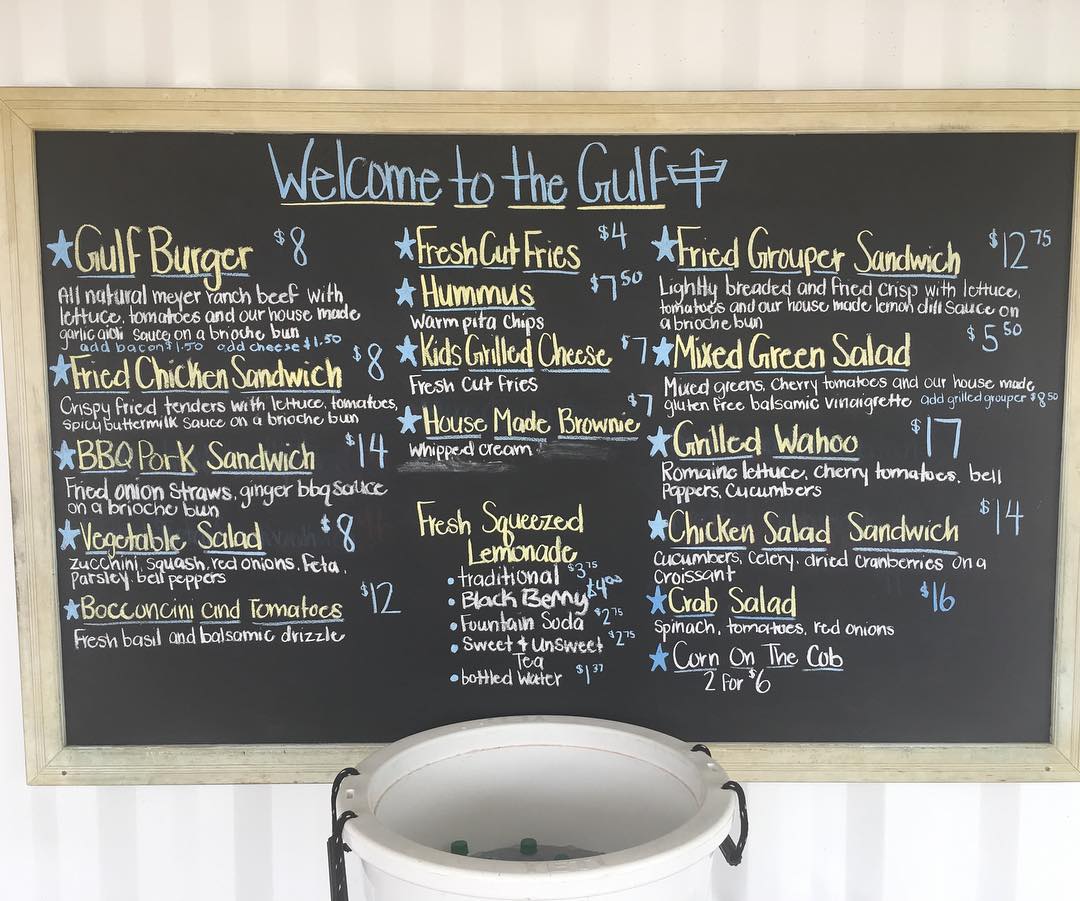 Welcome to the Gulf
Gulf Burger $8
All natural meyer ranch beef with
lettuce, tomatoes and our house made
garlic aioli sauce on a brioche bun
add bacon $1.50 add cheese $1.50
Fried Chicken Sandwich $8
Crispy fried tenders with lettuce, tomatoes,
spicy buttermilk sauce on a brioche bun
BBQ Pork Sandwich $14
Fried onion straws, ginger bbq sauce
on a brioche bun
Vegetable Salad $8
zucchini, squash, red onions, feta,
parsley, bell peppers
Bocconcini and Tomatoes $12
Fresh basil and balsamic drizzle
Fresh Cut Fries $4
Hummus $7.50
Warm pita chips
Kids Grilled Cheese $7
Fresh Cut Fries
House Made Brownie $7
whipped cream
Fresh Squeezed
Lemonade
• traditional $3.75
• Black Berry $4.00
• Fountain Soda $2.75
• Sweet & Unsweet $2.75
Tea
• bottled water $1.37
Fried Grouper Sandwich $12.75
Lightly breaded and fried crisp with lettuce,
tomatoes and our house made lemon dill sauce on
a brioche bun
Mixed Green Salad $5.50
Mixed greens, cherry tomatoes and our house made
gluten free balsamic vinaigrette add grilled grouper $8.50
Grilled Wahoo $17
Romaine lettuce, cherry tomatoes, bell
Peppers, Cucumbers
Chicken Salad Sandwich $14
Cucumbers, Celery, dried cranberries on a
Croissant
Crab Salad $16
spinach, tomatoes, red onions
Corn On The Cob
2 for $6